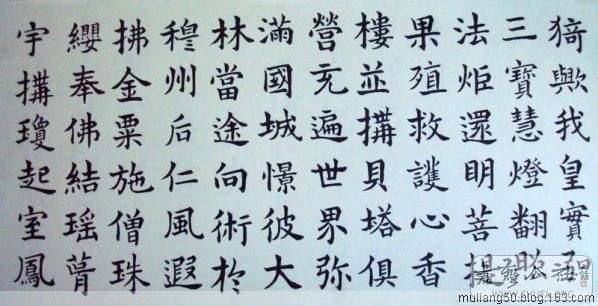 猗歟我皇實
三寶慧燈翻
法炬還明菩提
果殖救護心香
樓並搆貝塔俱
營充遍世界弥
滿國城憬彼大
林當途向術於
穆州后仁風遐
拂金粟施僧珠
纓奉佛結瑶葺
宇搆瓊起室鳳
muliang50.blog.163.com